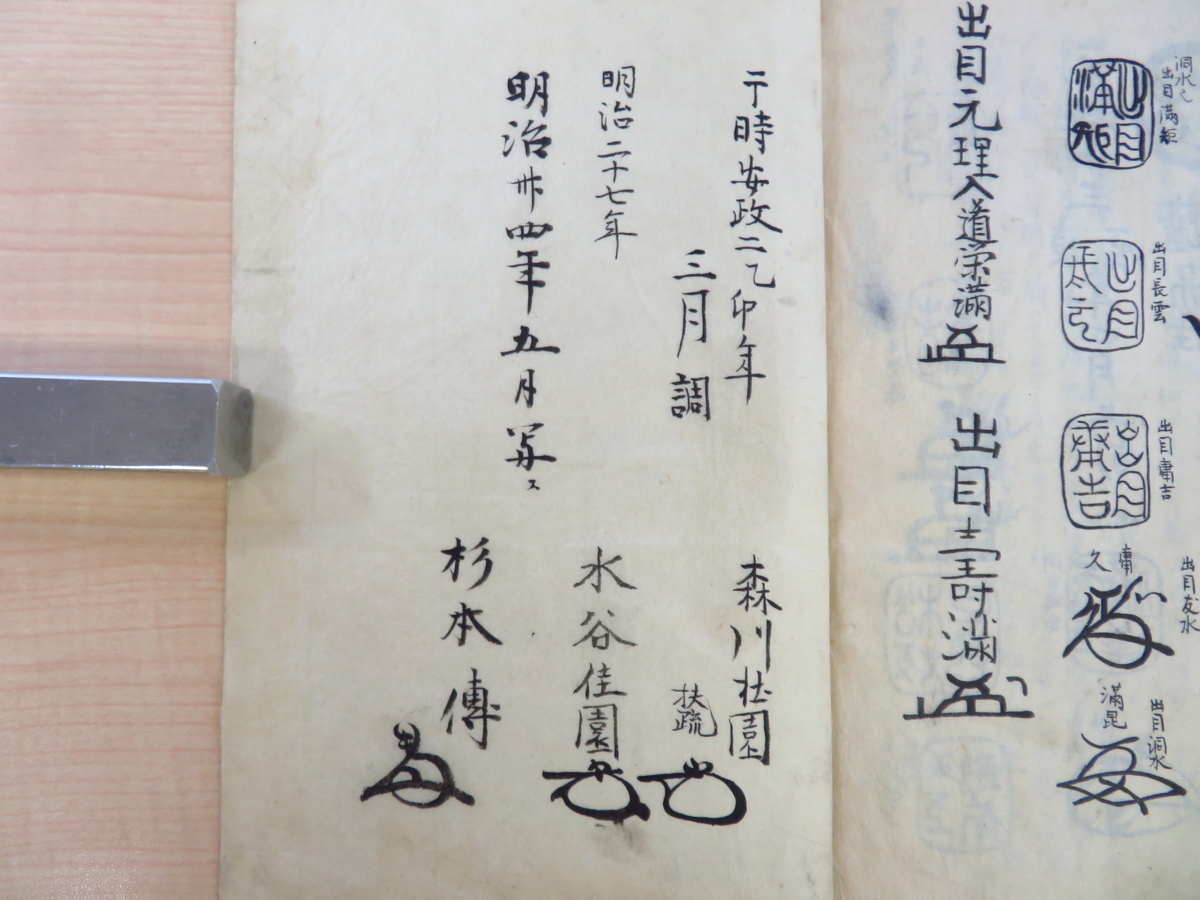 洞水之
出目満矩
出目満矩
出目長雲
出目庸吉
出目庸吉
出目友水
庸久
出目洞水
満昆
出目元理入道栄満
出目寿満
于時安政二乙卯年
三月調
森川杜園
扶疏
明治二十七年
水谷佳園
明治卅四年五月写ス
杉本傳